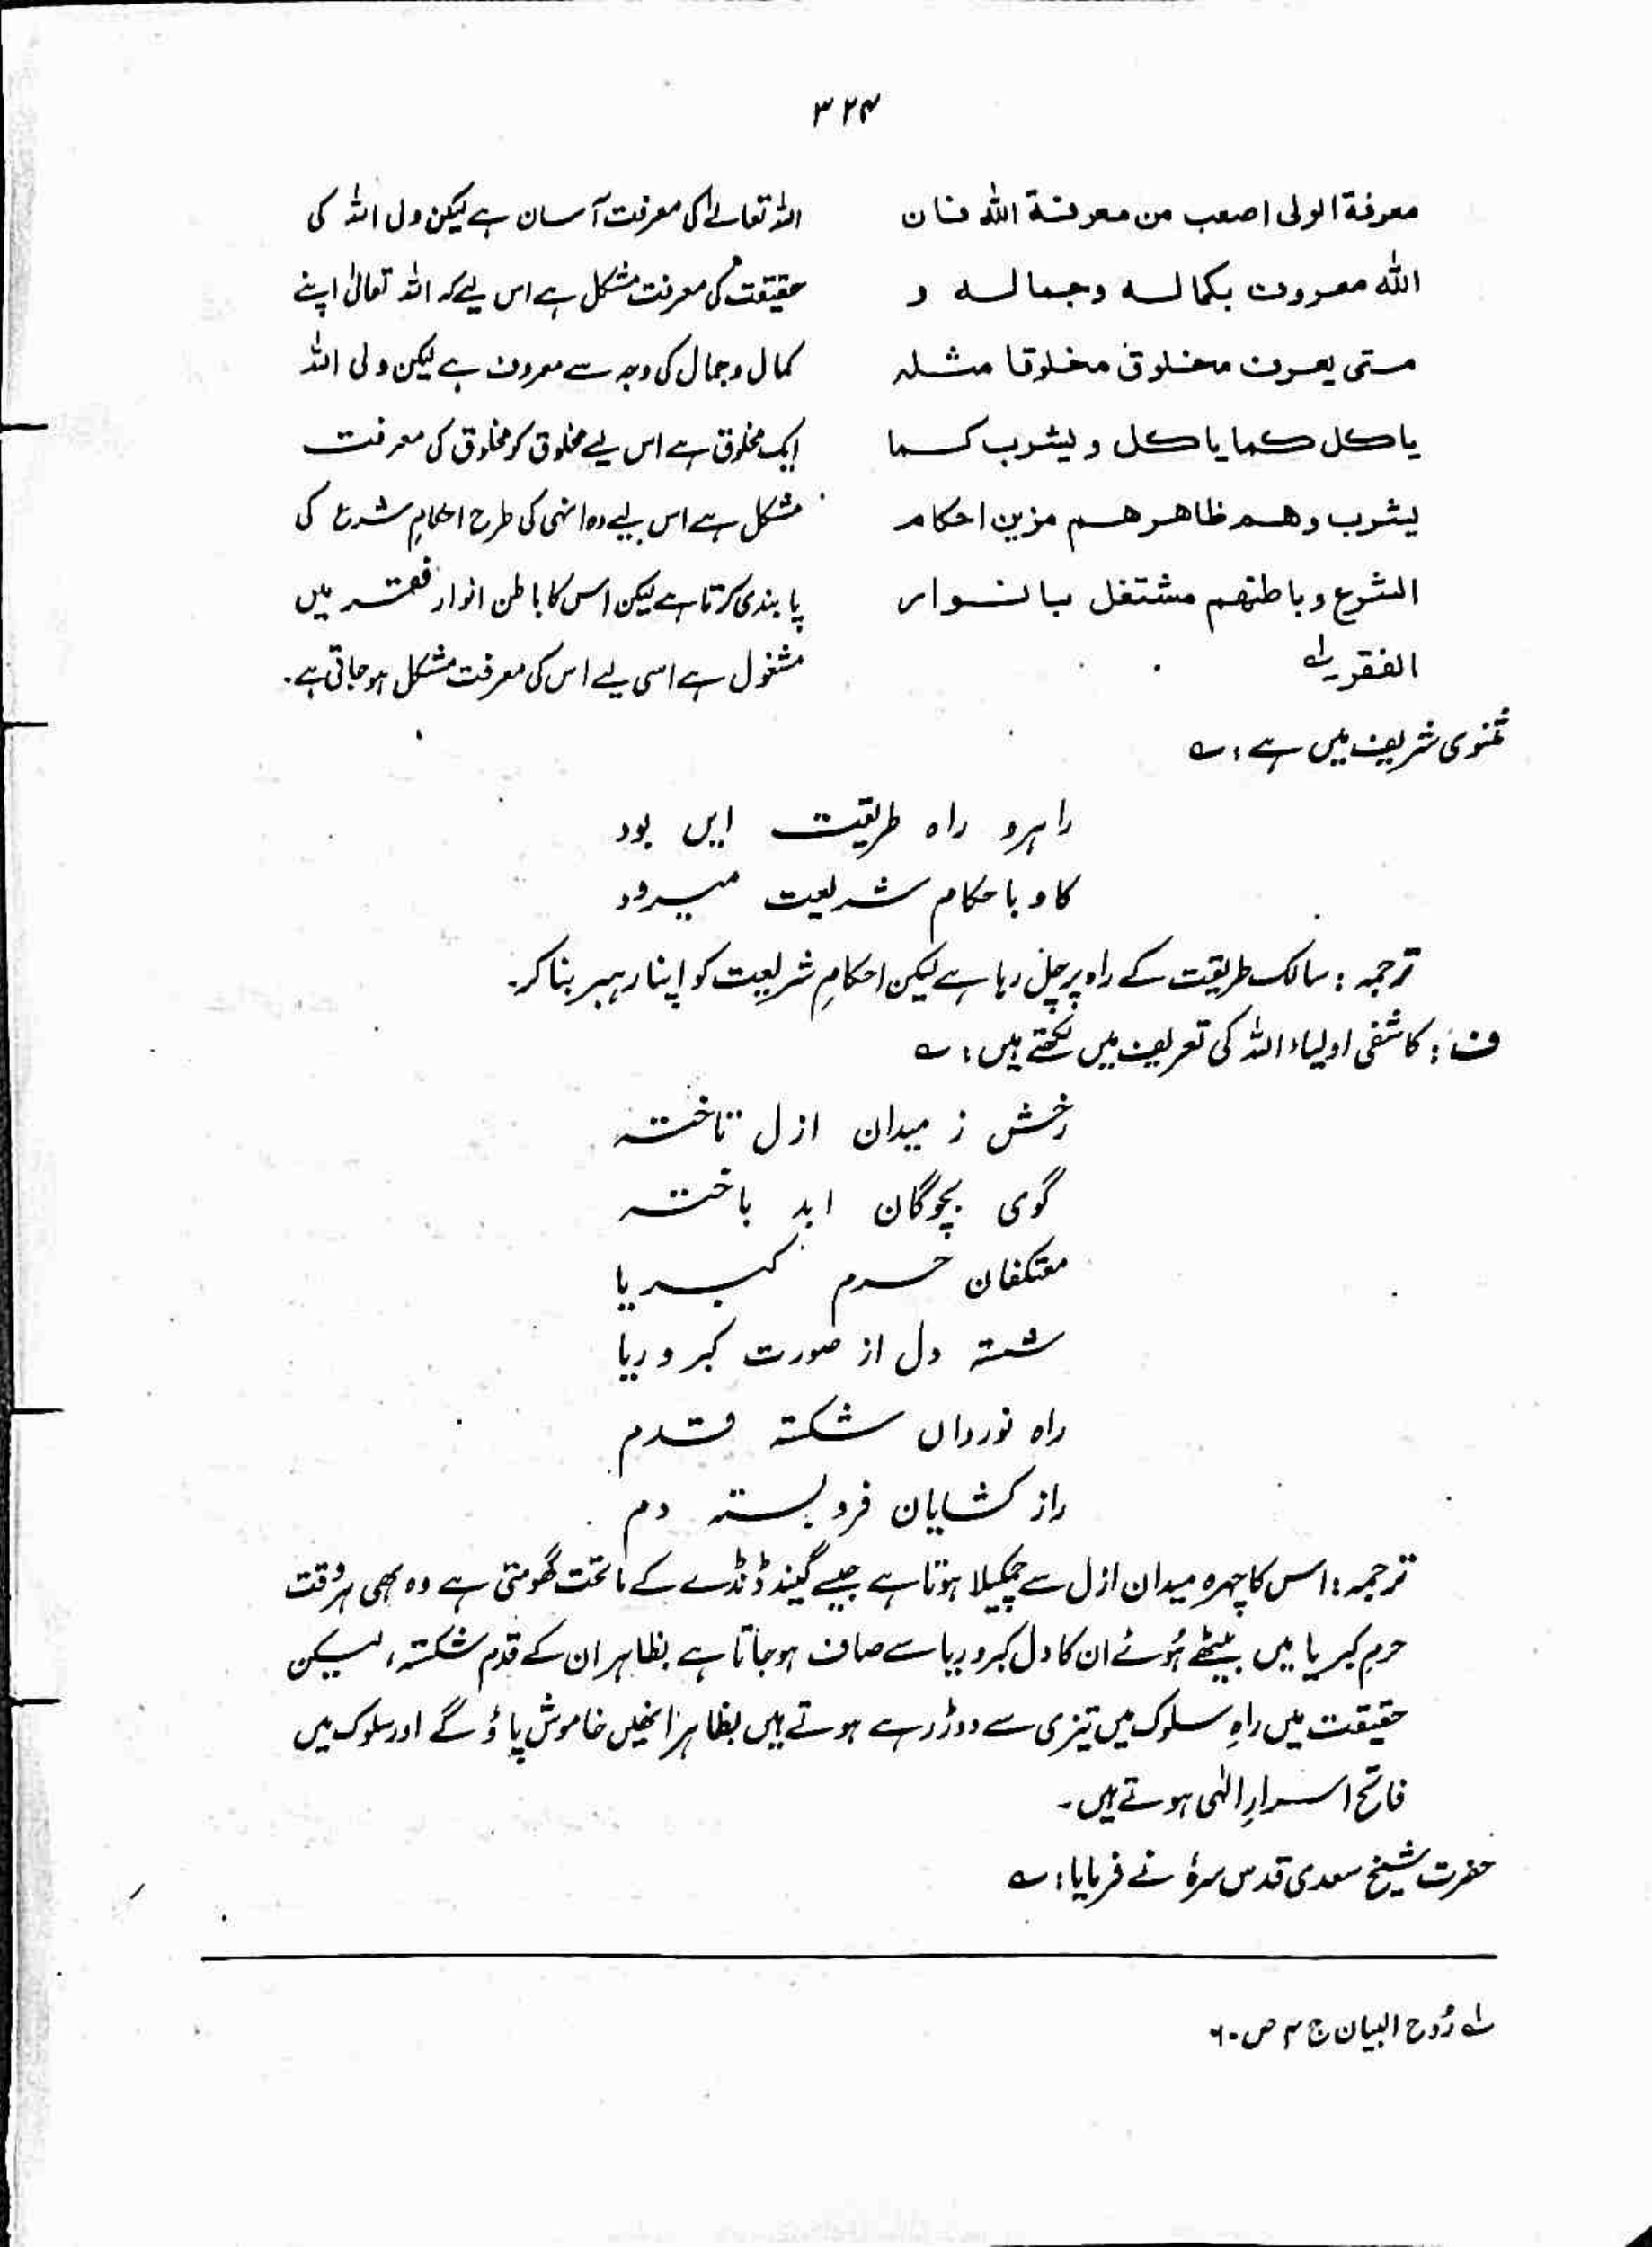 ۳۲۴
معرفة الولی اصعب من معرفة اللہ فان
اللہ معروف بکمالہ وجمالہ و
متی یعرف مخلوق مخلوقا مثلہ
یاکل کما یاکل ویشرب کما
یشرب وھم ظاھرھم مزین احکام
الشرع وباطنھم مشتغل بانوار
الفقر۔ لہ
اللہ تعالےٰ کی معرفت آسان ہے لیکن ولی اللہ کی
حقیقت کی معرفت مشکل ہے اس لیے کہ اللہ تعالیٰ اپنے
کمال وجمال کی وجہ سے معروف ہے لیکن ولی اللہ
ایک مخلوق ہے اس لیے مخلوق کو مخلوق کی معرفت
مشکل ہے اس لیے وہ انہی کی طرح احکامِ شرع کی
پابندی کرتا ہے لیکن اس کا باطن انوار فقر میں
مشغول ہے اسی لیے اس کی معرفت مشکل ہو جاتی ہے۔
مثنوی شریف میں ہے : ؎
راہرو راہ طریقت ایں بود
کاو باحکام شریعت میرود
ترجمہ : سالک طریقت کے راہ پر چل رہا ہے لیکن احکامِ شریعت کو اپنا رہبر بنا کر۔
ف : کاشفی اولیاء اللہ کی تعریف میں لکھتے ہیں : ؎
رخش ز میدان ازل تاختہ
گوی بچوگان ابد باختہ
معتکفان حرم کبریا
شستہ دل از صورت کبر و ریا
راہ نورداں شکستہ قدم
راز کشایان فرو بستہ دم
ترجمہ : اس کا چہرہ میدان ازل سے چمکیلا ہوتا ہے جیسے گیند ڈنڈے کے ماتحت گھومتی ہے وہ بھی ہر وقت
حرمِ کبریا میں بیٹھے ہُوئے ان کا دل کبر و ریا سے صاف ہو جاتا ہے بظاہر ان کے قدم شکستہ، لیکن
حقیقت میں راہِ سلوک میں تیزی سے دوڑ رہے ہوتے ہیں بظاہر انھیں خاموش پاؤ گے اور سلوک میں
فاتح اسرارِ الٰہی ہوتے ہیں۔
حضرت شیخ سعدی قدس سرہٗ نے فرمایا : ؎
لہ رُوح البیان ج ۴ ص ۶۰